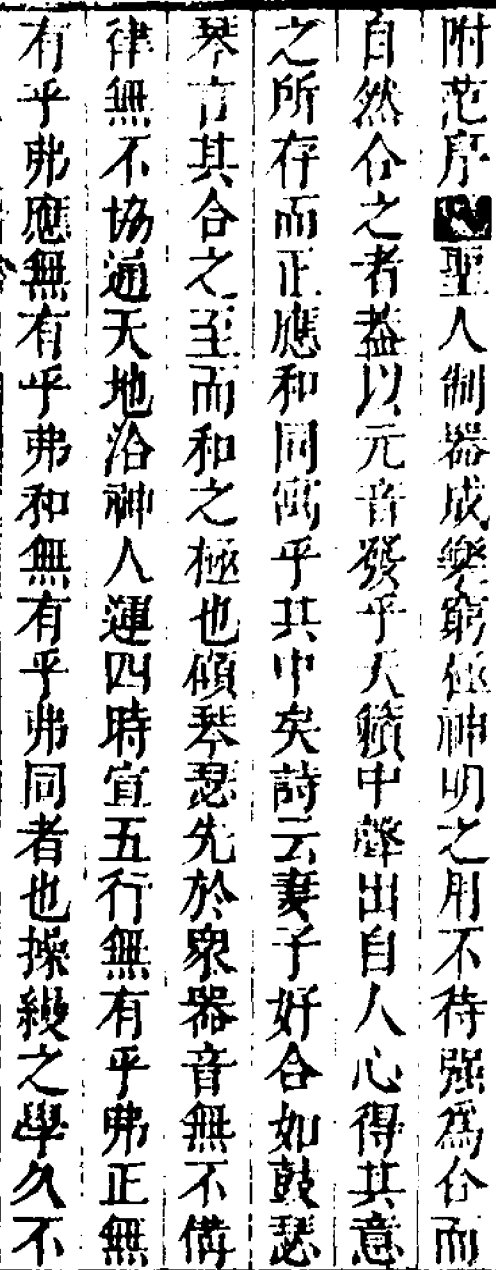 附范序聖人制器成樂窮極神明之用不待強爲合而
自然合之者葢以元音發乎天籟中聲出自人心得其意
之所存而正應和同寓乎其中矣詩云妻子好合如鼓瑟
琴言其合之至而和之極也頋琴瑟先於衆器音無不備
律無不協通天地洽神人運四時宣五行無有乎弗正無
有乎弗應無有乎弗和無有乎弗同者也操縵之學久不